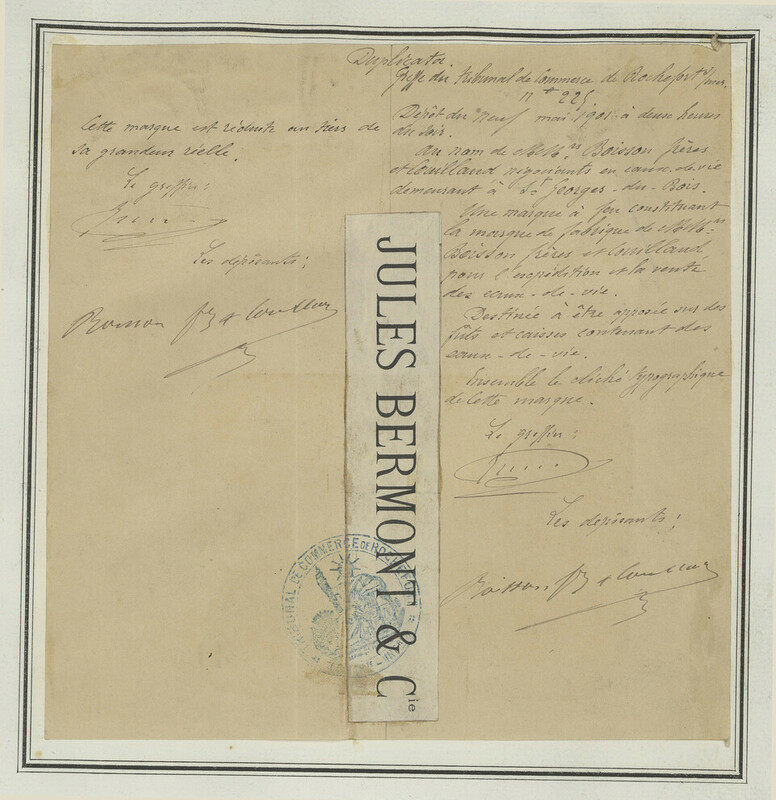 Duplicata.
Greffe du tribunal de Commerce de Rochefort s/mer.
nº 225.
Dépôt du neuf mai 1901 à deux heures
du soir.
Au nom de MM.rs Boisson frères
et Couilland négociants en eaux-de-vie
demeurant à St Georges-du-Bois.
Une marque à feu constituant
la marque de fabrique de MM.rs
Boisson frères et Couilland
pour l'expédition et la vente
des eaux-de-vie.
Destinée à être apposée sur des
fûts et caisses contenant des
eaux-de-vie.
Ensemble le cliché typographique
de cette marque.
Le greffier:
Les déposants:
Boisson frs & Couilland
Cette marque est réduite au tiers de
sa grandeur réelle.
Le greffier:
Les déposants:
Boisson frs & Couilland
JULES BERMONT & Cie
TRIBUNAL DE COMMERCE DE ROCHEFORT